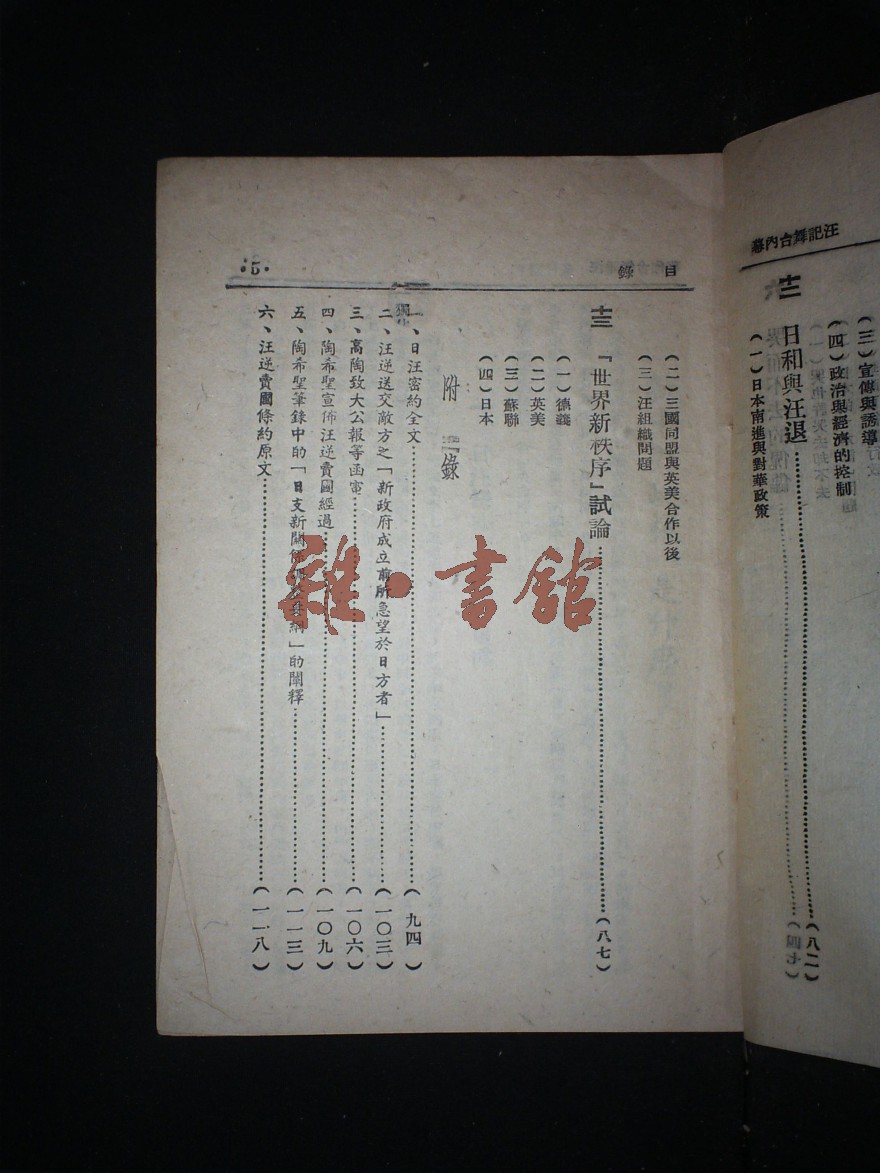 汪記舞台內幕
(三)宣傳與誘導
(四)政治與經濟的控制
十二 日和與汪退……(八二)
(一)日本南進與對華政策
目錄
·5·
(二)三國同盟與英美合作以後
(三)汪組織問題
十三 「世界新秩序」試論……(八七)
(一)德義
(二)英美
(三)蘇聯
(四)日本
附錄
一、日汪密約全文……(九四)
二、汪逆送交敵方之「新政府成立前所急望於日方者」……(一〇三)
三、高陶致大公報等函電……(一〇六)
四、陶希聖宣佈汪逆賣國經過……(一〇九)
五、陶希聖筆錄中的「日支新關係調整要綱」的闡釋……(一一三)
六、汪逆賣國條約原文……(一一八)
雜·書館